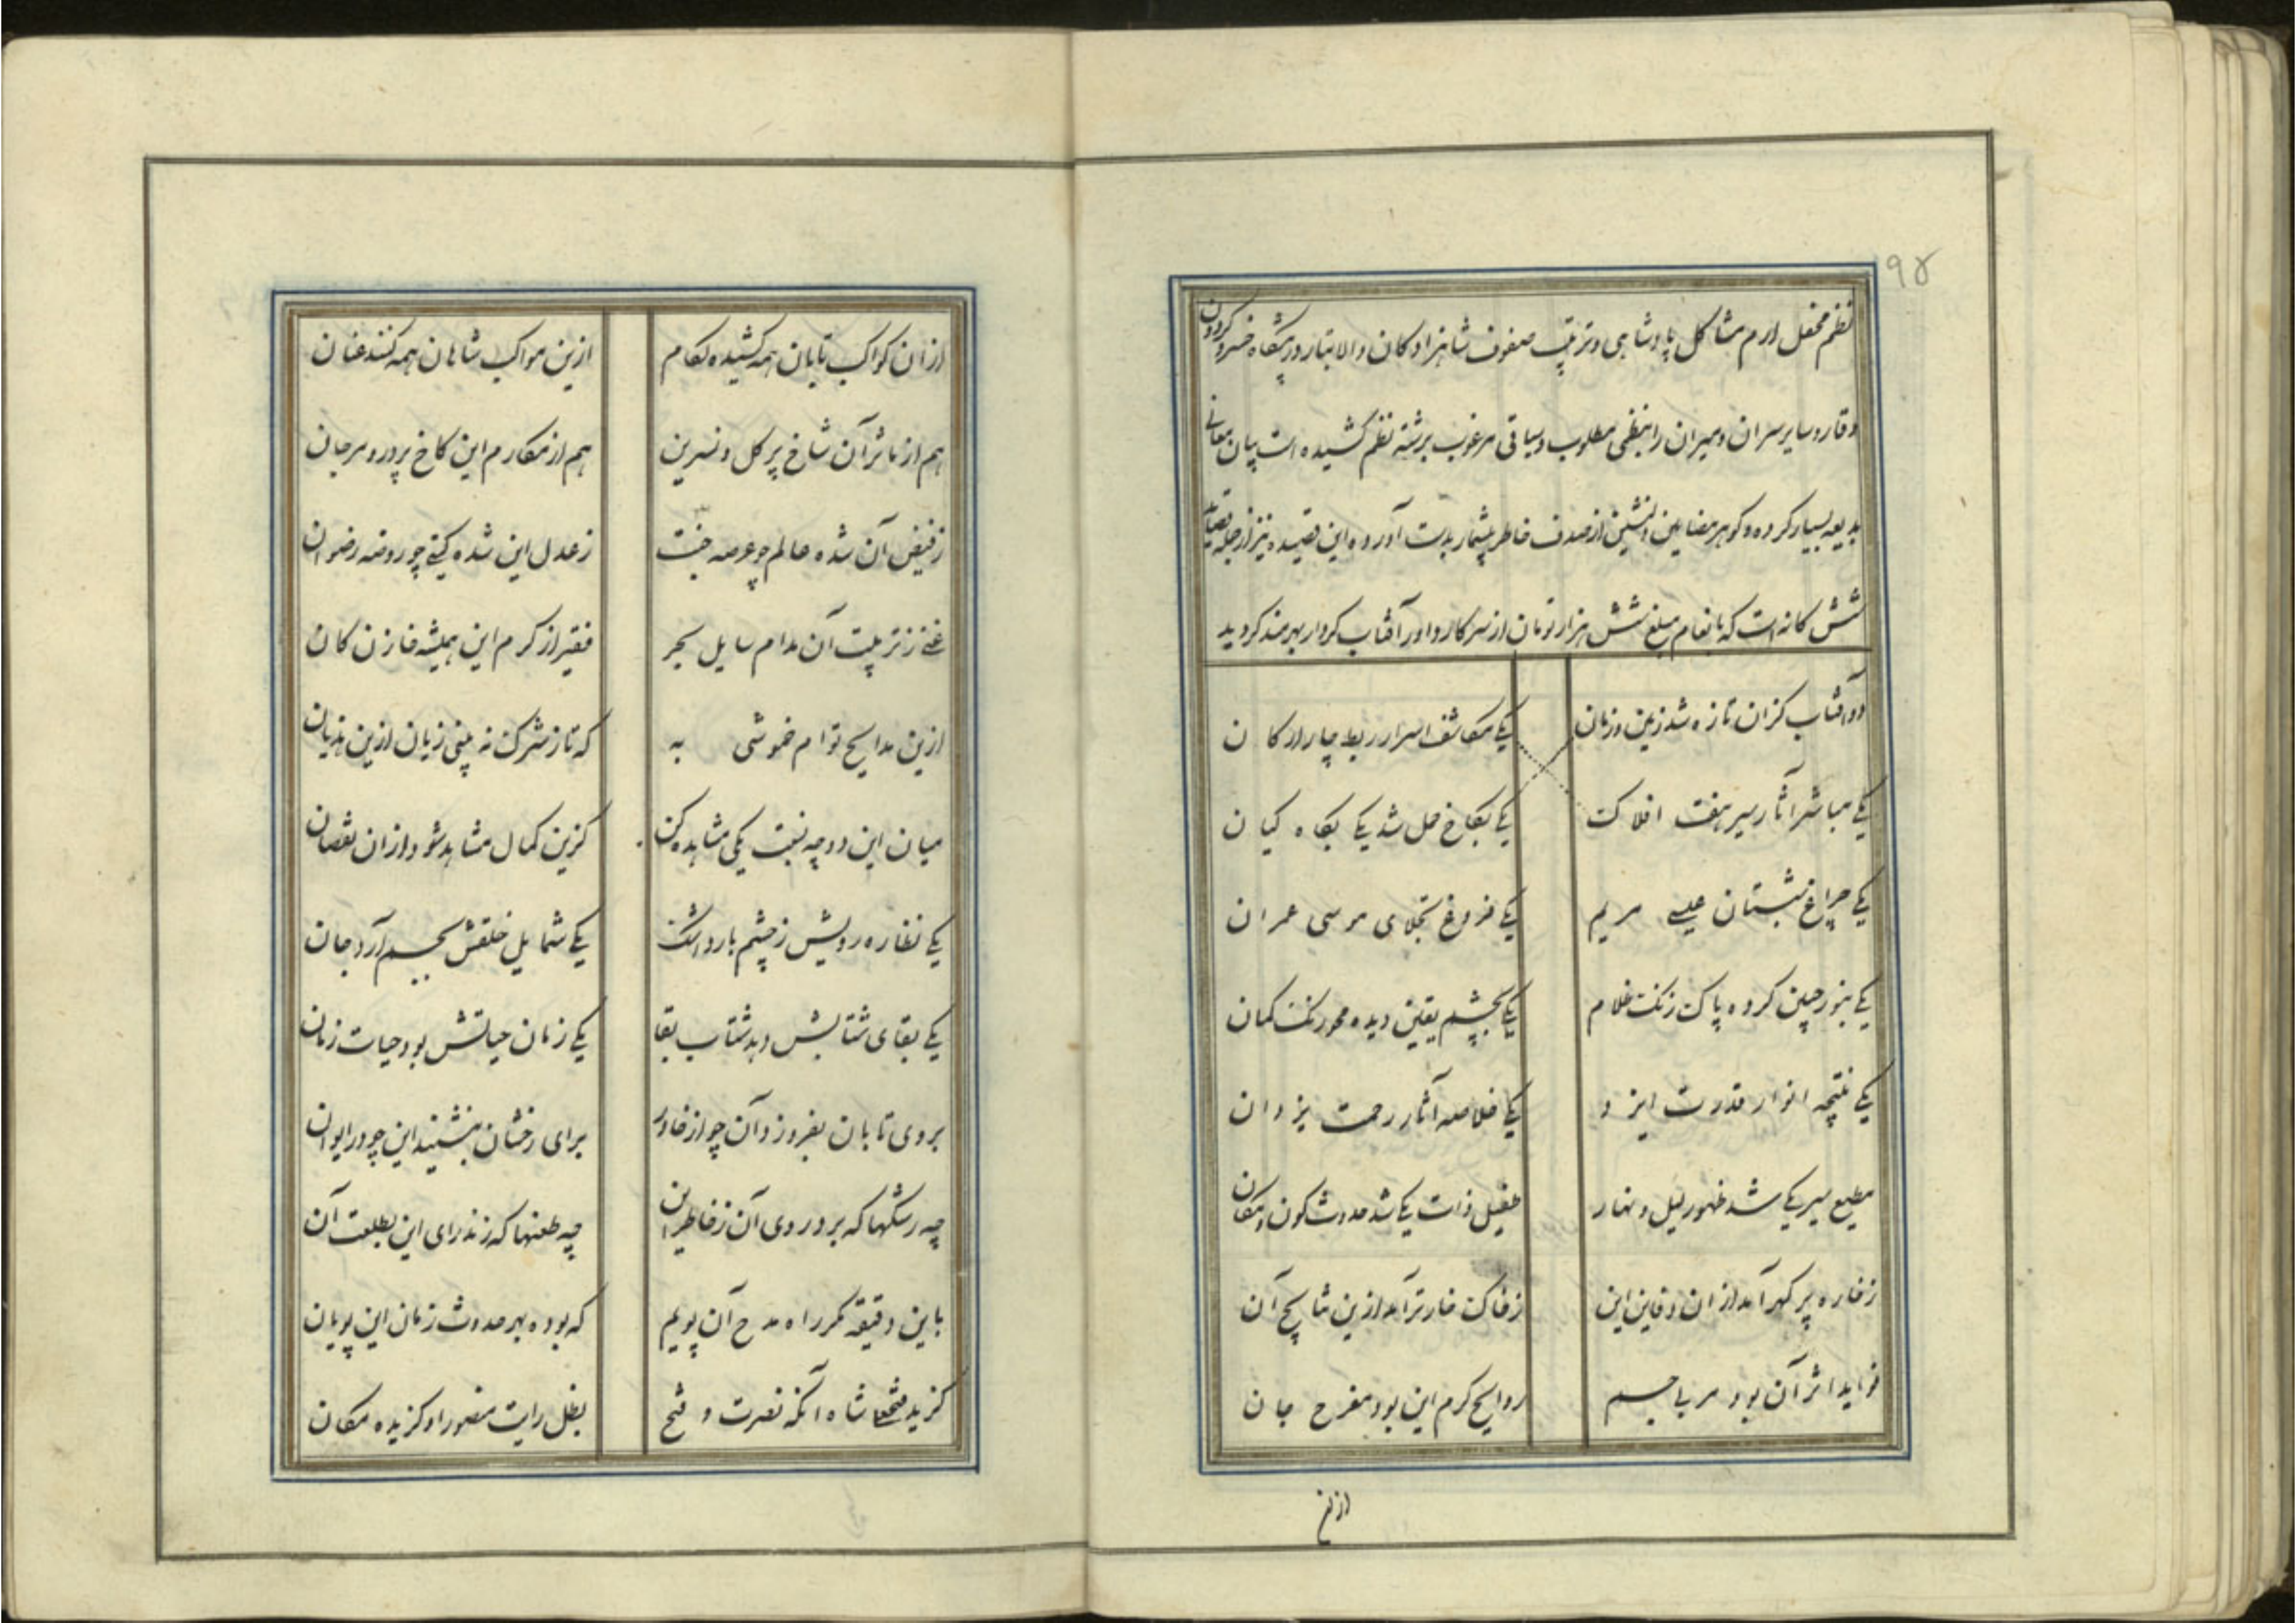 ۹۴
نظم محفل ارم مشاکل پادشاهی و ترتیب صفوف شاهزادکان والاتبار در پیشگاه خسرو کردون
وقار و سایر سران و میران را بنظمی مطلوب و سیاقی مرغوب برشته نظم کشیده است بیان معانی
بدیعه بسیار کرده و کوهر مضامین دلنشین از صدف خاطر بیشمار بدست آورده این قصیده نیز از جمله قصاید
شش کانه است که بانعام مبلغ شش هزار تومان از سرکار داور آفتاب کردار بهرمند کردید
دو آفتاب کزان تازه شد زمین و زمان یکی مکاشف اسرار ربط چار ارکان
یکی مباشر آثار سیر هفت افلاک یکی بکاخ حمل شد یکی بکاه کیان
یکی چراغ شبستان عیسی مریم یکی فروغ تجلای موسی عمران
یکی بنور جبین کرده پاک زنک ظلام یکی بچشم یقین دیده محو رنک کمان
یکی نتیجه انوار قدرت ایزد یکی خلاصه آثار رحمت یزدان
مطیع سیر یکی شد ظهور لیل و نهار طفیل ذات یکی شد حدوث کون و مکان
زخاره پر کهر آمد ازان دفاین این زخاک خارتر آمد ازین آن
فواید اثر آن بود مربی جسم روایح کرم این بود مفرح جان
ازان کواکب تابان همه کشیده لکام ازین مواکب شاهان همه کنند عنان
هم از مآثر آن شاخ پر کل و نسرین هم از مکارم این کاخ پر در و مرجان
زفیض آن شده عالم چو عرصه جنت زعدل این شده کیتی چو روضه رضوان
غنی زتربیت آن مدام سایل بحر فقیر از کرم این همیشه خازن کان
ازین مدایح توام خموشی به که تا زشرک نه بینی زیان ازین هذیان
میان این دو چه نسبت یکی مشاهده کن کزین کمال مشاهد شود ازان نقصان
یکی نظاره رویش زچشم بارد اشک یکی شمایل خلقش بجسم آرد جان
یکی بقای شتابش دهد شتاب بقا یکی زمان حیاتش بود حیات زمان
بروی تابان بفروزد آن چو از خاور برای رخشان بنشیند این چو در ایوان
چه رشکها که برد روی آن زخاطر این چه طعنها که زند رای این بطلعت آن
باین دقیقه مکر راه مدح آن پویم که بوده بهر حدوث زمان این پویان
کزیده فتحعلی شاه آنکه نصرت و فتح بظل رایت منصور او کزیده مکان